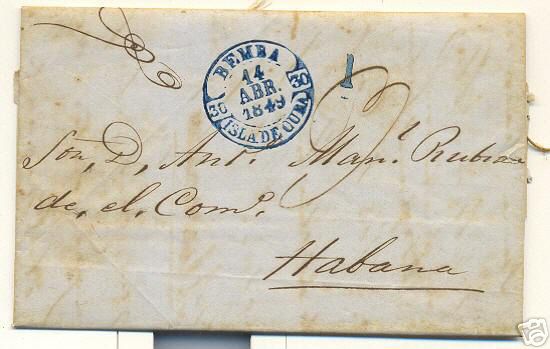 BEMBA
14
ABR.
1849
30 30
ISLA DE CUBA
1
Sor, D, Ant. Manl. Rubia
de, el, Como.
Habana